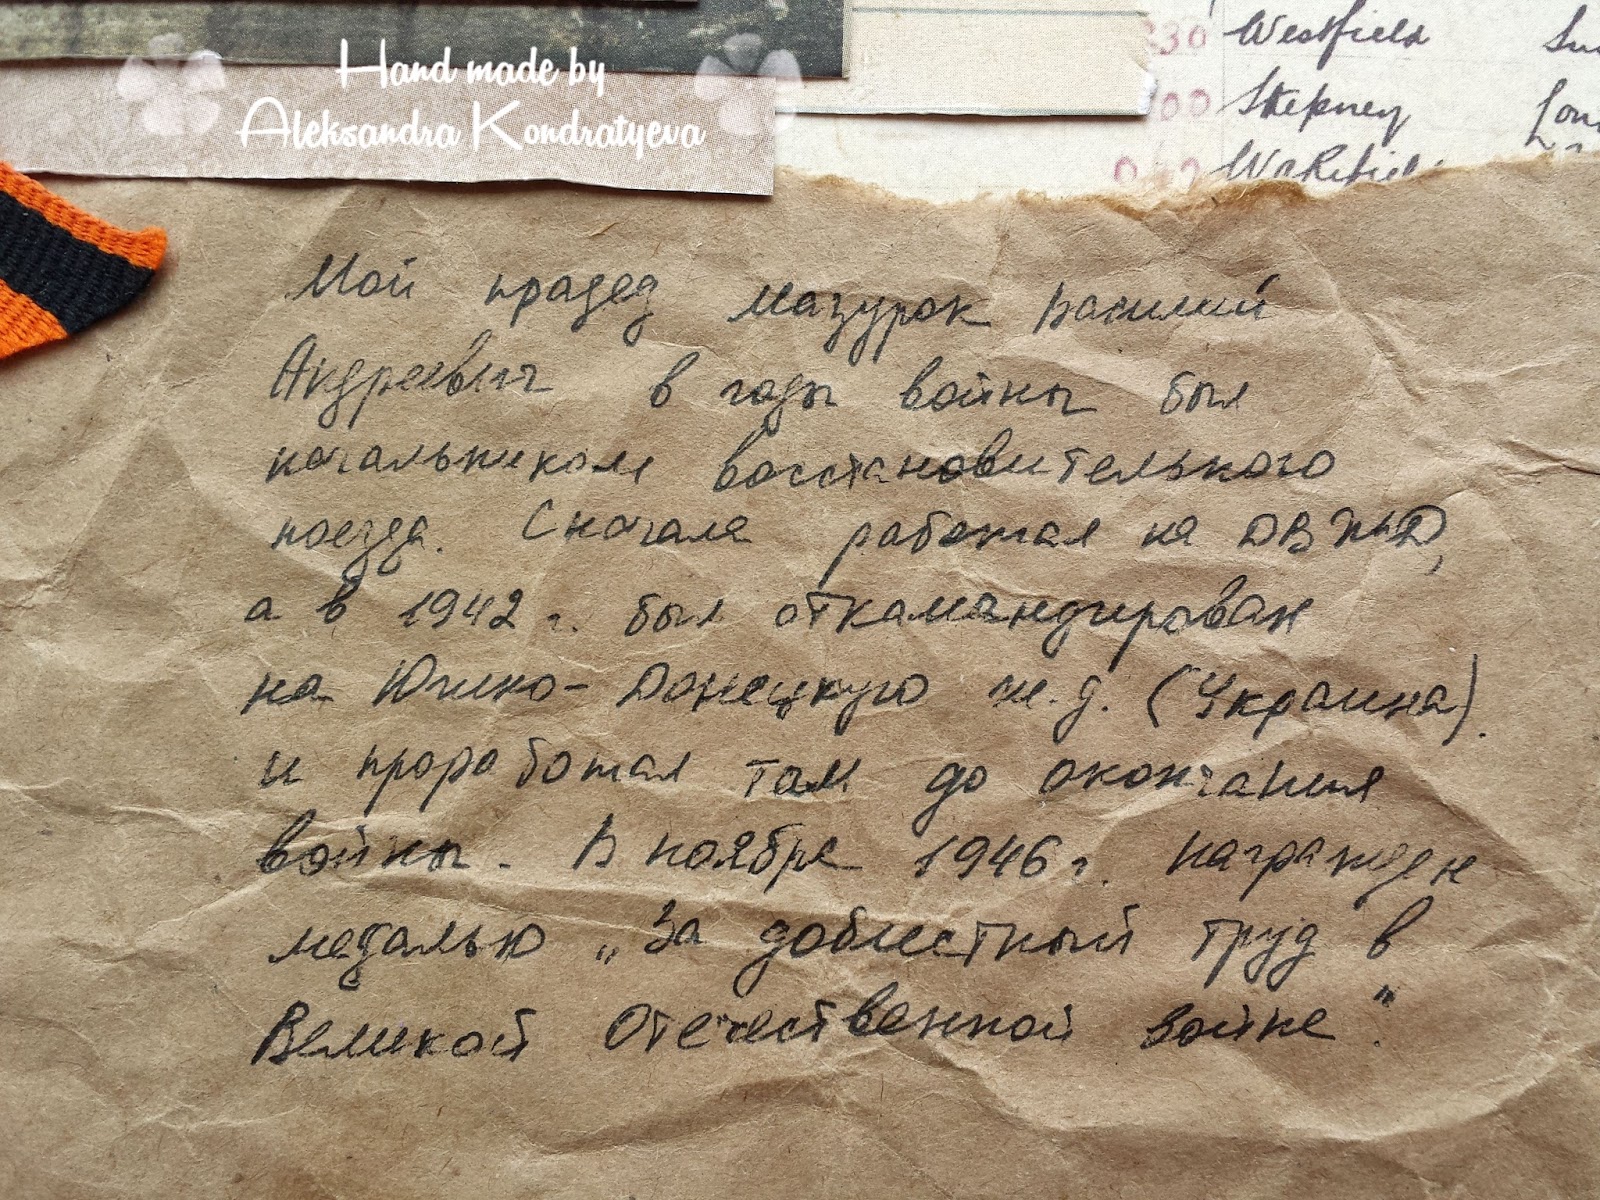 Hand made by
Aleksandra Kondratyeva
230 Westfield
00 Stepney
Wakefiel
Мой прадед Мазурок Василий
Андреевич в годы войны был
начальником восстановительного
поезда. Сначала работал на ДВЖД,
а в 1942 г. был откомандирован
на Южно-Донецкую ж.д. (Украина).
и проработал там до окончания
войны. В ноябре 1946 г. награжден
медалью „За доблестный труд в
Великой Отечественной войне".